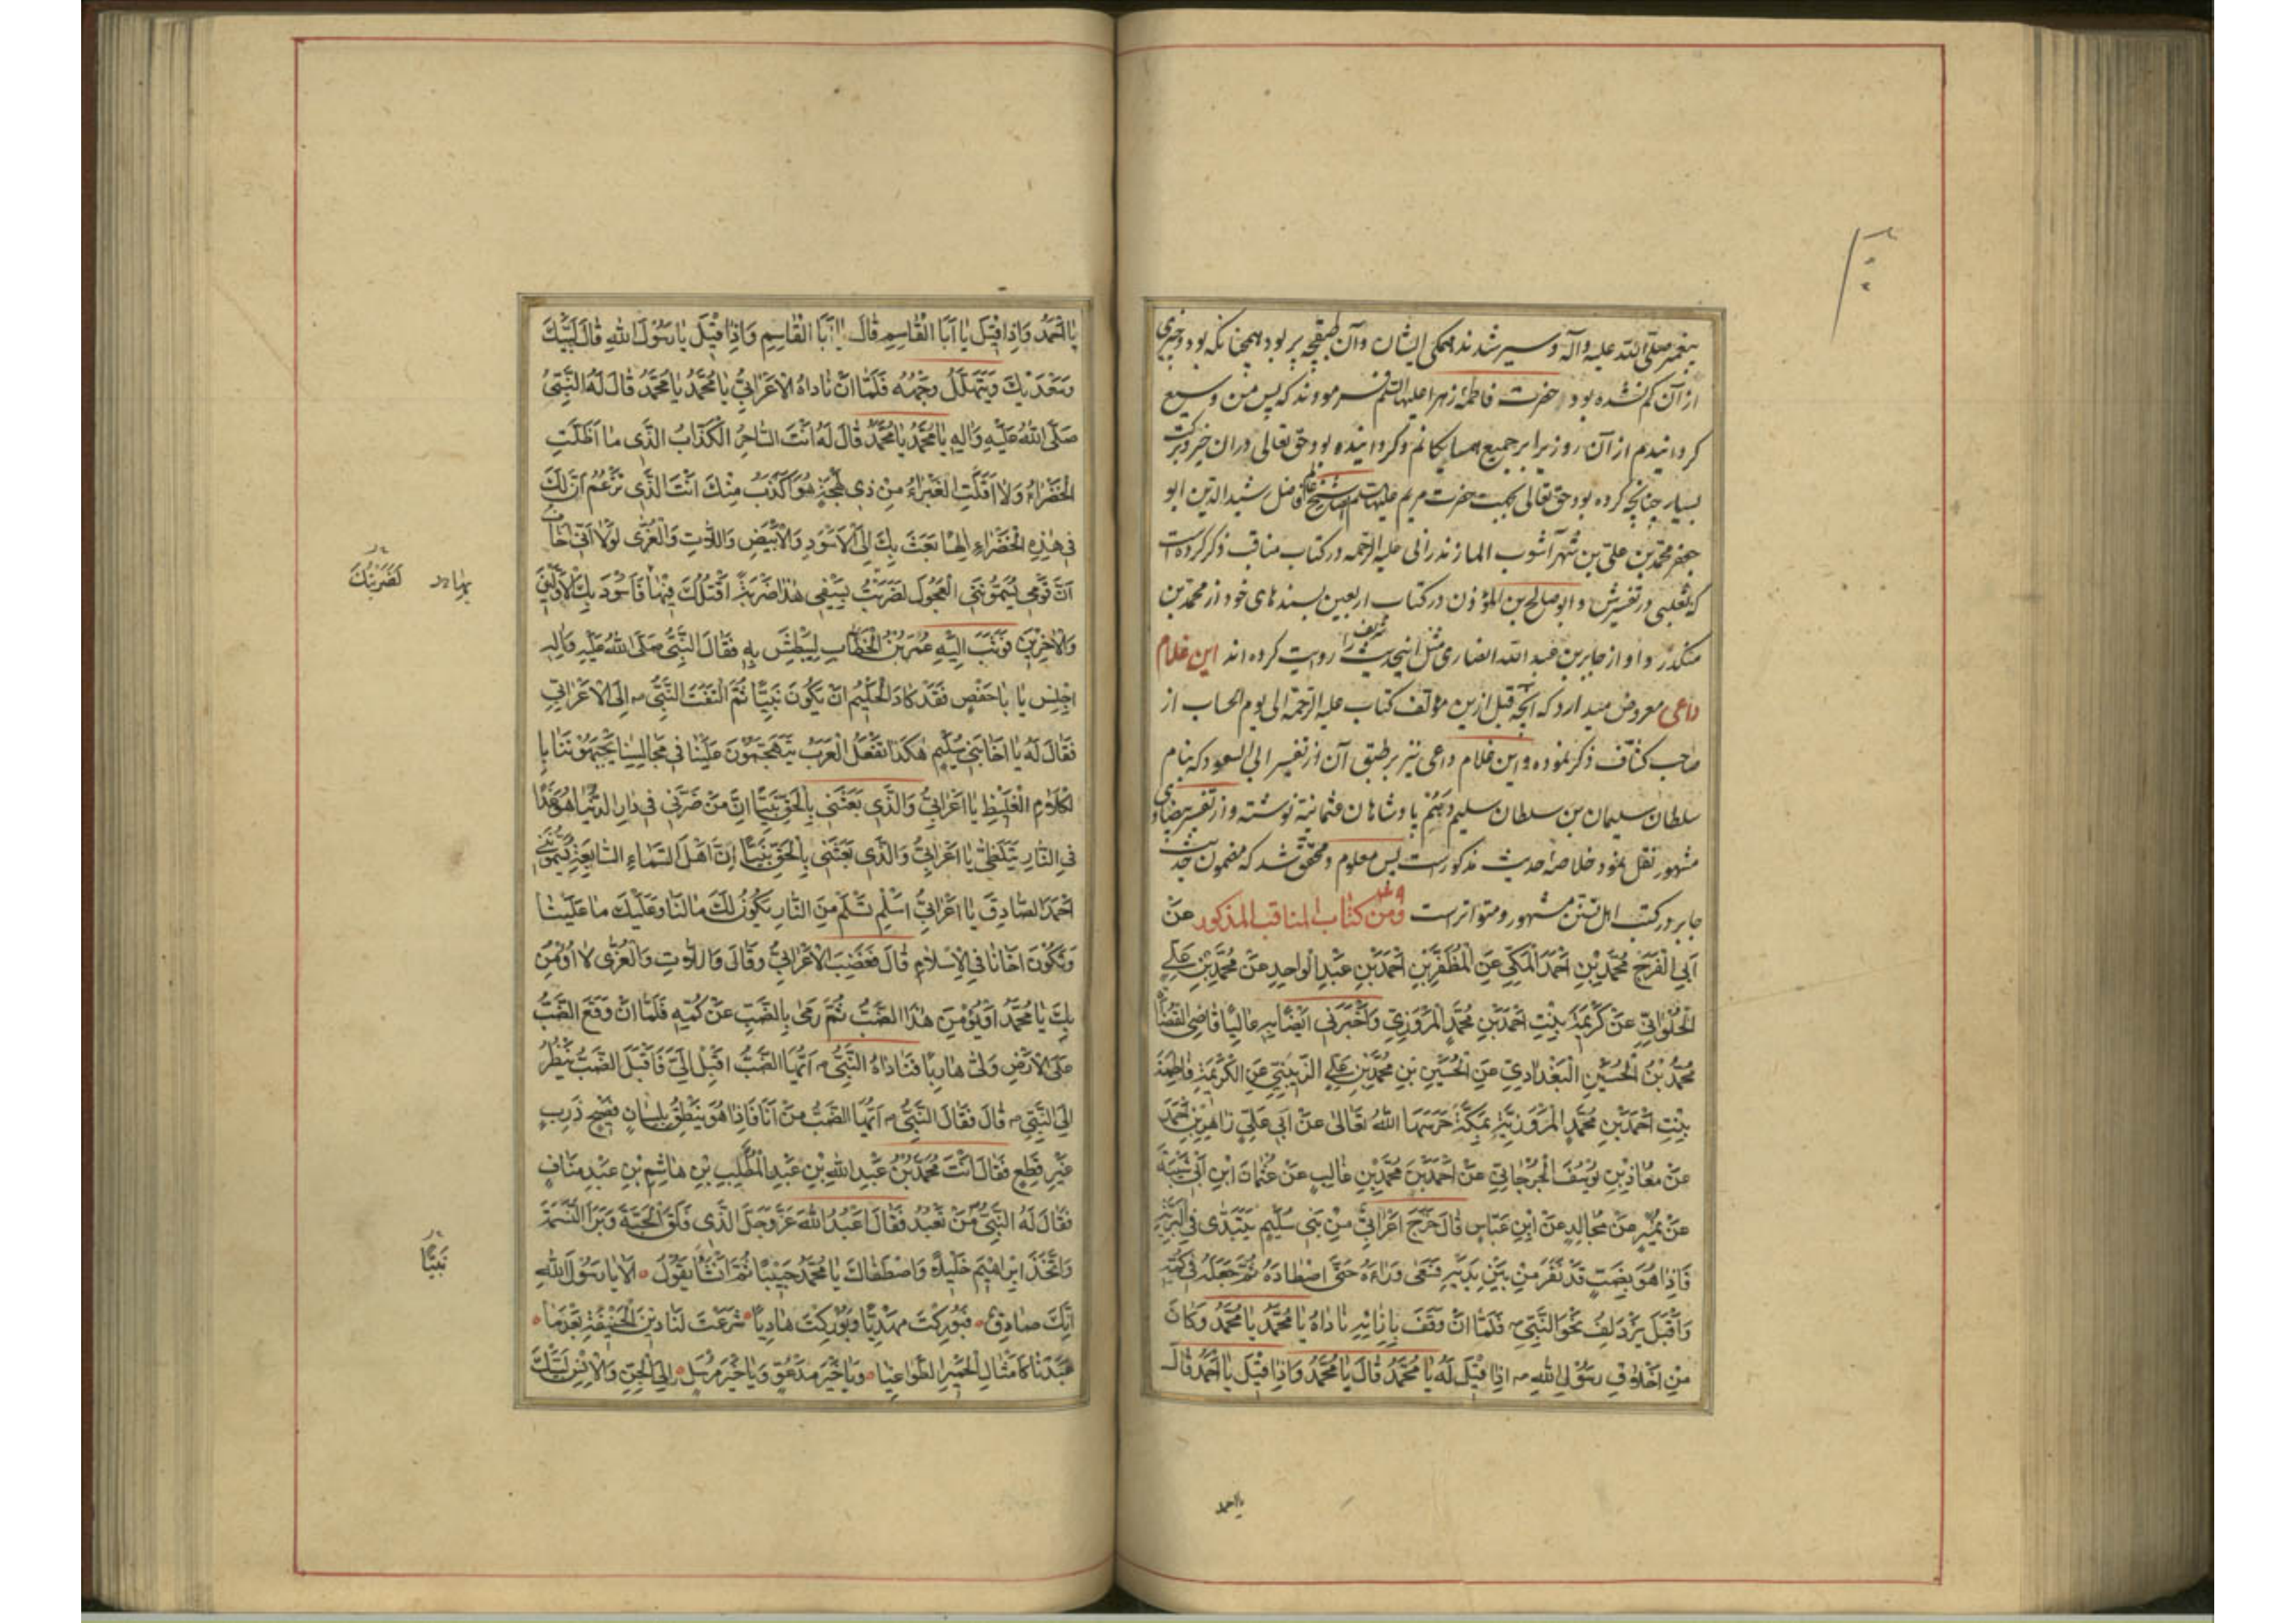 پیغمبر صلّی اللّه علیه وآله وسیر شدند همکی ایشان وآن طبقچه پر بود همچنانکه بود وچیزی
از آن کم نشده بود حضرت فاطمهٔ زهرا علیها السّلم فرمودند که پس من وسیع
کردانیدم از آن روز برابر جمیع همسایکانم وکردانیده بود حق تعالی در ان خیر وبرکت
بسیار چنانچه کرده بود حق تعالی بجهت حضرت مریم علیها السلم شیخ فاضل رشید الدّین ابو
جعفر محمّد بن علیّ بن شهرآشوب المازندرانی علیه الرّحمه در کتاب مناقب ذکر کرده است
که ثعلبی در تفسیرش و ابو صالح بن المؤذن در کتاب اربعین بسندهای خود از محمّد بن
منکدر واو از جابر بن عبد اللّه انصاری مثل اینحدیث شریف را روایت کرده اند این غلام
داعی معروض میدارد که آنچه قبل ازین مؤلف کتاب علیه الرّحمة الی یوم الحساب از
صاحب کشّاف ذکر نموده واین غلام داعی نیز بر طبق آن از تفسیر ابی السعود که بنام
سلطان سلیمان بن سلطان سلیم دهّم پادشاهان عثمانیّة نوشته واز تفسیر بیضاوی
مشهور نقل نمود خلاصهٔ حدیث مذکورست پس معلوم ومحقّق شد که مضمون حدیث
جابر در کتب اهل تسنّن مشهور ومتواترست ومن کتاب المناقب المذکور عَنْ
اَبِی الْفَرَجِ مُحَمَّدِ بْنِ اَحْمَدَ الْمَکِّیِّ عَنِ الْمُظَفَّرِ بْنِ اَحْمَدَ بْنِ عَبْدِ الْواحِدِ عَنْ مُحَمَّدِ بْنِ عَلِیٍّ
الْحُلْوانِیِّ عَنْ کَرِیمَةَ بِنْتِ اَحْمَدَ بْنِ مُحَمَّدٍ الْمَرْوَزِیِّ وَاَخْبَرَنی اَیْضًا بِهِ عالِیًا قاضِی القُضاةِ
مُحَمَّدُ بْنُ الْحُسَیْنِ الْبَغْدادِیِّ عَنِ الْحُسَیْنِ بْنِ مُحَمَّدِ بْنِ عَلِیٍّ الزَّیْنَبِیِّ عَنِ الْکَرِیمَةِ فاطِمَةَ
بِنْتِ اَحْمَدَ بْنِ مُحَمَّدٍ الْمَرْوَزِیَّةِ بِمَکَّةَ حَرَسَهَا اللّهُ تَعالیٰ عَنْ اَبی عَلِیٍّ زاهِرِ بْنِ اَحْمَدَ
عَنْ مُعاذِ بْنِ یُوسُفَ الْجُرْجانِیِّ عَنْ اَحْمَدَ بْنِ مُحَمَّدِ بْنِ غالِبٍ عَنْ عُثْمانَ ابْنِ اَبی شَیْبَةَ
عَنْ نُمَیْرٍ عَنْ مُجالِدٍ عَنْ ابْنِ عَبّاسٍ قالَ خَرَجَ اَعْرابِیٌّ مِنْ بَنی سُلَیْمٍ یَتَبَدّیٰ فِی الْبَرِّیَّةِ
فَاِذا هُوَ بِضَبٍّ قَدْ نَفَرَ مِنْ بَیْنِ یَدَیْهِ فَسَعیٰ وَراءَهُ حَتّیَ اصْطادَهُ ثُمَّ جَعَلَهُ فی کُمِّهِ
وَاَقْبَلَ یَزْدَلِفُ نَحْوَ النَّبِیِّ ص فَلَمّا اَنْ وَقَفَ بِاِزائِهِ ناداهُ یا مُحَمَّدُ یا مُحَمَّدُ وَکانَ
مِنْ اَخْلاقِ رَسُولِ اللّهِ ص اِذا قیلَ لَهُ یا مُحَمَّدُ قالَ یا مُحَمَّدُ وَاِذا قیلَ یا اَحْمَدُ قالَ
یا احمد
یا اَحْمَدُ وَاِذا قیلَ یا اَبَا الْقاسِمِ قالَ یا اَبَا الْقاسِمِ وَاِذا قیلَ یا رَسُولَ اللهِ قالَ لَبَّیْکَ
وَسَعْدَیْکَ وَیَتَهَلَّلُ وَجْهُهُ فَلَمّا اَنْ ناداهُ الْاَعْرابِیُّ یا مُحَمَّدُ یا مُحَمَّدُ قالَ لَهُ النَّبِیُّ
صَلَّی اللهُ عَلَیْهِ وَالِهِ یا مُحَمَّدُ یا مُحَمَّدُ قالَ لَهُ اَنْتَ السّاحِرُ الْکَذّابُ الَّذی ما اَظَلَّتِ
الْخَضْراءُ وَلا اَقَلَّتِ الْغَبْراءُ مِنْ ذی لَهْجَةٍ هُوَ اَکْذَبُ مِنْکَ اَنْتَ الَّذی تَزْعُمُ اَنَّ لَکَ
فی هٰذِهِ الْخَضْراءِ اِلٰهًا بَعَثَ بِکَ اِلَی الْاَسْوَدِ وَالْاَبْیَضِ وَاللّاتِ وَالْعُزّیٰ لَوْلا اَنّی اَخافُ
اَنَّ قَوْمی یُسَمُّونَنِی الْعَجُولَ لَضَرَبْتُ بِسَیْفی هٰذا ضَرْبَةً اَقْتُلُکَ فیها فَاَسُودَ بِکَ الْاَوَّلینَ
وَالْاٰخِرینَ فَوَثَبَ اِلَیْهِ عُمَرُ بْنُ الْخَطّابِ لِیَبْطِشَ بِهِ فَقالَ النَّبِیُّ صَلَّی اللهُ عَلَیْهِ وَالِهِ
اجْلِسْ یا باحَفْصٍ فَقَدْ کادَ الْحَلیمُ اَنْ یَکُونَ نَبِیًّا ثُمَّ الْتَفَتَ النَّبِیُّ ص اِلَی الْاَعْرابِیِّ
فَقالَ لَهُ یا اَخا بَنی سُلَیْمٍ هٰکَذا تَفْعَلُ الْعَرَبُ یَتَهَجَّمُونَ عَلَیْنا فی مَجالِسِنا یَجْبَهُونَنا بِا
لْکَلامِ الْغَلیظِ یا اَعْرابِیُّ وَالَّذی بَعَثَنی بِالْحَقِّ نَبِیًّا اِنَّ مَنْ ضَرَّنی فی دارِ الدُّنْیا هُوَ غَدًا
فِی النّارِ یَتَلَظّیٰ یا اَعْرابِیُّ وَالَّذی بَعَثَنی بِالْحَقِّ نَبِیًّا اِنَّ اَهْلَ السَّماءِ السّابِعَةِ یُسَمُّونَنی
اَحْمَدَ الصّادِقَ یا اَعْرابِیُّ اَسْلِمْ تَسْلَمْ مِنَ النّارِ یَکُونُ لَکَ ما لَنا وَعَلَیْکَ ما عَلَیْنا
وَتَکُونَ اَخانا فِی الْاِسْلامِ قالَ فَغَضِبَ الْاَعْرابِیُّ وَقالَ وَاللّاتِ وَالْعُزّیٰ لا اُؤْمِنُ
بِکَ یا مُحَمَّدُ اَوْ یُؤْمِنَ هٰذَا الضَّبُّ ثُمَّ رَمیٰ بِالضَّبِّ عَنْ کُمِّهِ فَلَمّا اَنْ وَقَعَ الضَّبُّ
عَلَی الْاَرْضِ وَلّیٰ هارِبًا فَناداهُ النَّبِیُّ ص اَیُّهَا الضَّبُّ اَقْبِلْ اِلَیَّ فَاَقْبَلَ الضَّبُّ یَنْظُرُ
اِلَی النَّبِیِّ ص قالَ فَقالَ النَّبِیُّ ص اَیُّهَا الضَّبُّ مَنْ اَنَا فَاِذا هُوَ یَنْطِقُ بِلِسانٍ فَصیحٍ ذَرِبٍ
غَیْرِ قَطِعٍ فَقالَ اَنْتَ مُحَمَّدُ بْنُ عَبْدِ اللهِ بْنِ عَبْدِ الْمُطَّلِبِ بْنِ هاشِمِ بْنِ عَبْدِ مَنافٍ
فَقالَ لَهُ النَّبِیُّ مَنْ تَعْبُدُ فَقالَ اَعْبُدُ اللهَ عَزَّ وَجَلَّ الَّذی فَلَقَ الْحَبَّةَ وَبَرَأَ النَّسَمَةَ
وَاتَّخَذَ اِبْراهیمَ خَلیلًا وَاصْطَفاکَ یا مُحَمَّدُ حَبیبًا ثُمَّ اَنْشَأَ یَقُولُ اَلا یا رَسُولَ اللهِ
اِنَّکَ صادِقٌ فَبُورِکْتَ مَهْدِیًّا وَبُورِکْتَ هادِیًا شَرَعْتَ لَنا دینَ الْحَنیفَةِ بَعْدَما
عَبَدْنا کَاَمْثالِ الْحَمیرِ الطَّواغِیا وَیا خَیْرَ مَدْعُوٍّ وَیا خَیْرَ مُرْسَلٍ اِلَی الْجِنِّ وَالْاِنْسِ لَبَّیْکَ
بها لَضَرَبْتُکَ
نَبِیًّا